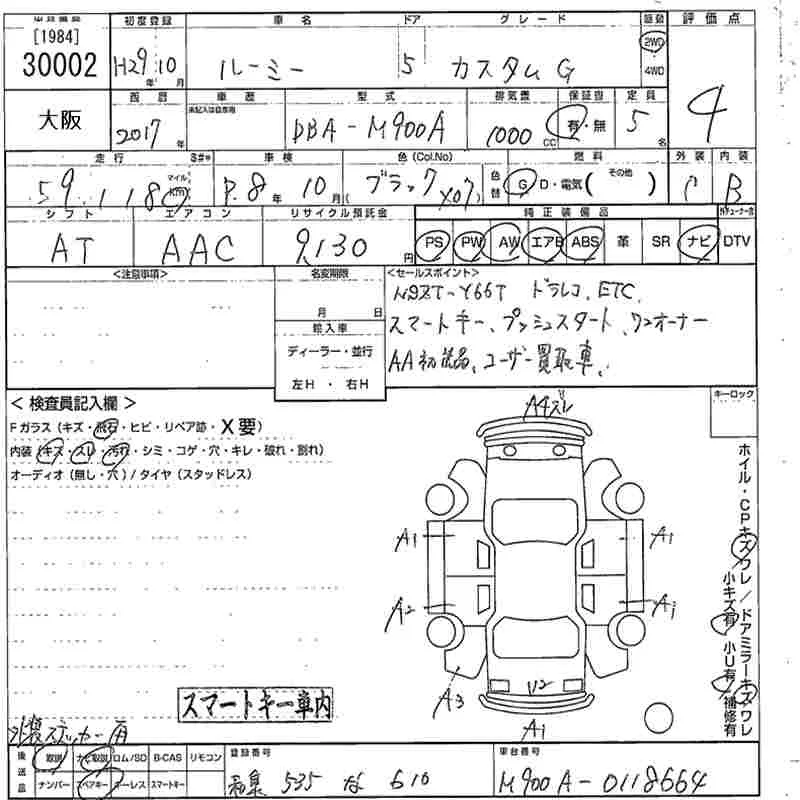 初度登録 車名 ドア グレード 駆動 評価点
[1984]
30002 H29年10月 ルーミー 5 カスタムG 2WD 4WD 4
大阪 西暦 車歴 型式 排気量 保証書 定員
未記入は自家用
2017年 DBA-M900A 1000CC 有・無 5名
走行 マイル Km S#* 車検 色(Col.No) 色替 燃料 外装 内装
59,118 R.8年10月 (ブラック X07) G・D・電気( その他 ) C B
シフト エアコン リサイクル預託金 純正装備品
AT AAC 9,130円 PS PW AW エアB ABS 革 SR ナビ DTV
<注意事項> 名変期限 <セールスポイント>
月 日
NSZT-Y66T ドラレコ、ETC、
輸入車
スマートキー、プッシュスタート、ワンオーナー
ディーラー・並行
AA初出品、ユーザー買取車、
左H・右H
<検査員記入欄>
キーロック
Fガラス(キズ・飛石・ヒビ・リペア跡・X要)
内装(キズ・スレ・汚れ・シミ・コゲ・穴・キレ・破れ・割れ)
オーディオ(無し・穴)/タイヤ(スタッドレス)
A4ズレ
A1 A1
A2 A1
A3 U2
A1
ホイル・CPキズワレ/ドアミラーキズワレ
小キズ有 小U有 補修有
スマートキー車内
外装ステッカー有
後送品 取説 ナビ取説 ロム/SD B-CAS リモコン 登録番号 車台番号
ナンバー スペアキー キーレス スマートキー 和泉 535 な 610 M900A-0118664